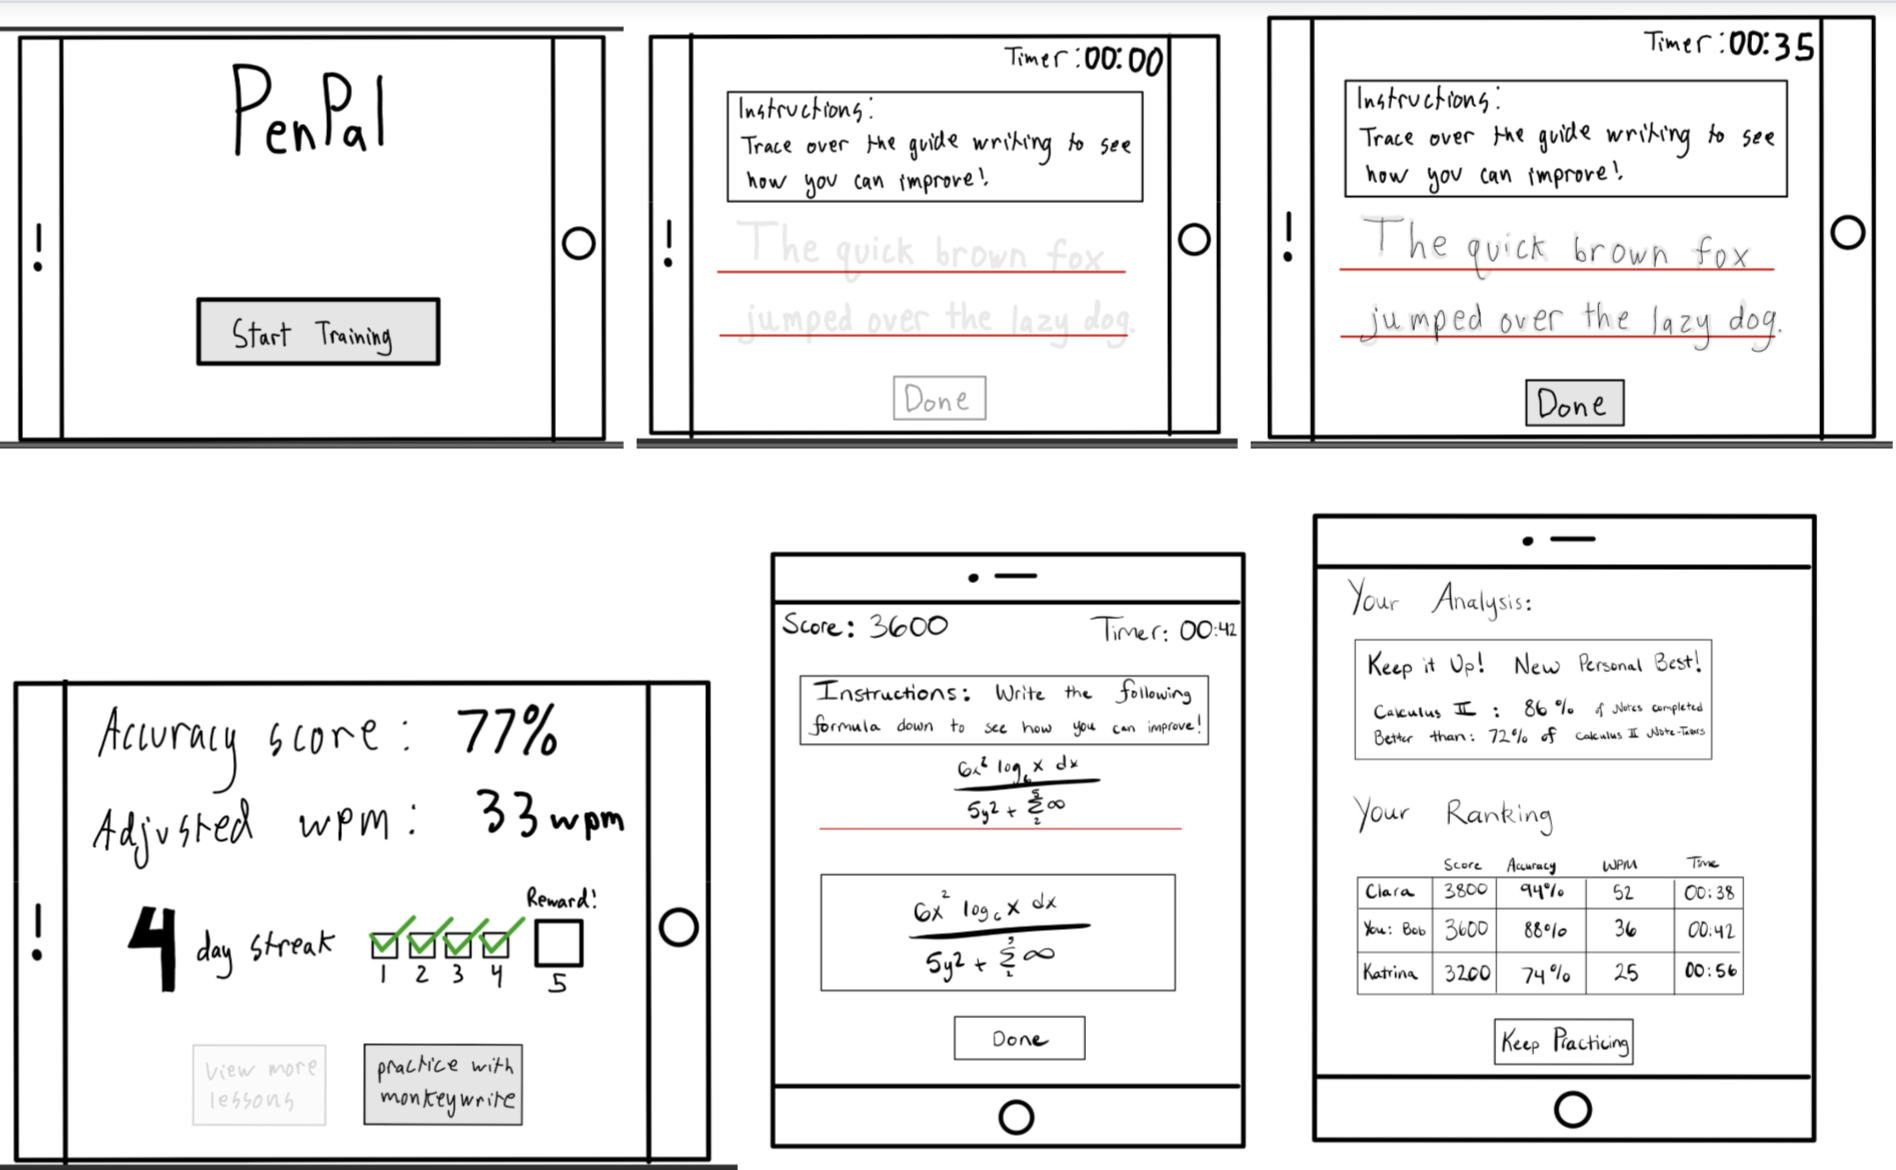 PenPal
Start Training
Timer: 00:00
Instructions:
Trace over the guide writing to see
how you can improve!
The quick brown fox
jumped over the lazy dog.
Done
Timer: 00:35
Instructions:
Trace over the guide writing to see
how you can improve!
The quick brown fox
jumped over the lazy dog.
Done
Accuracy score: 77%
Adjusted wpm: 33 wpm
Reward!
4 day streak
1 2 3 4 5
view more
lessons
practice with
monkeywrite
Score: 3600 Timer: 00:42
Instructions: Write the following
formula down to see how you can improve!
6x² log₆ x dx
5y² + Σ ∞
6x² log₆ x dx
5y² + Σ ∞
Done
Your Analysis:
Keep it Up! New Personal Best!
Calculus II : 86% of Notes completed
Better than: 72% of Calculus II Note-Takers
Your Ranking
Score Accuracy WPM Time
Clara 3800 94% 52 00:38
You: Bob 3600 88% 36 00:42
Katrina 3200 74% 25 00:56
Keep Practicing